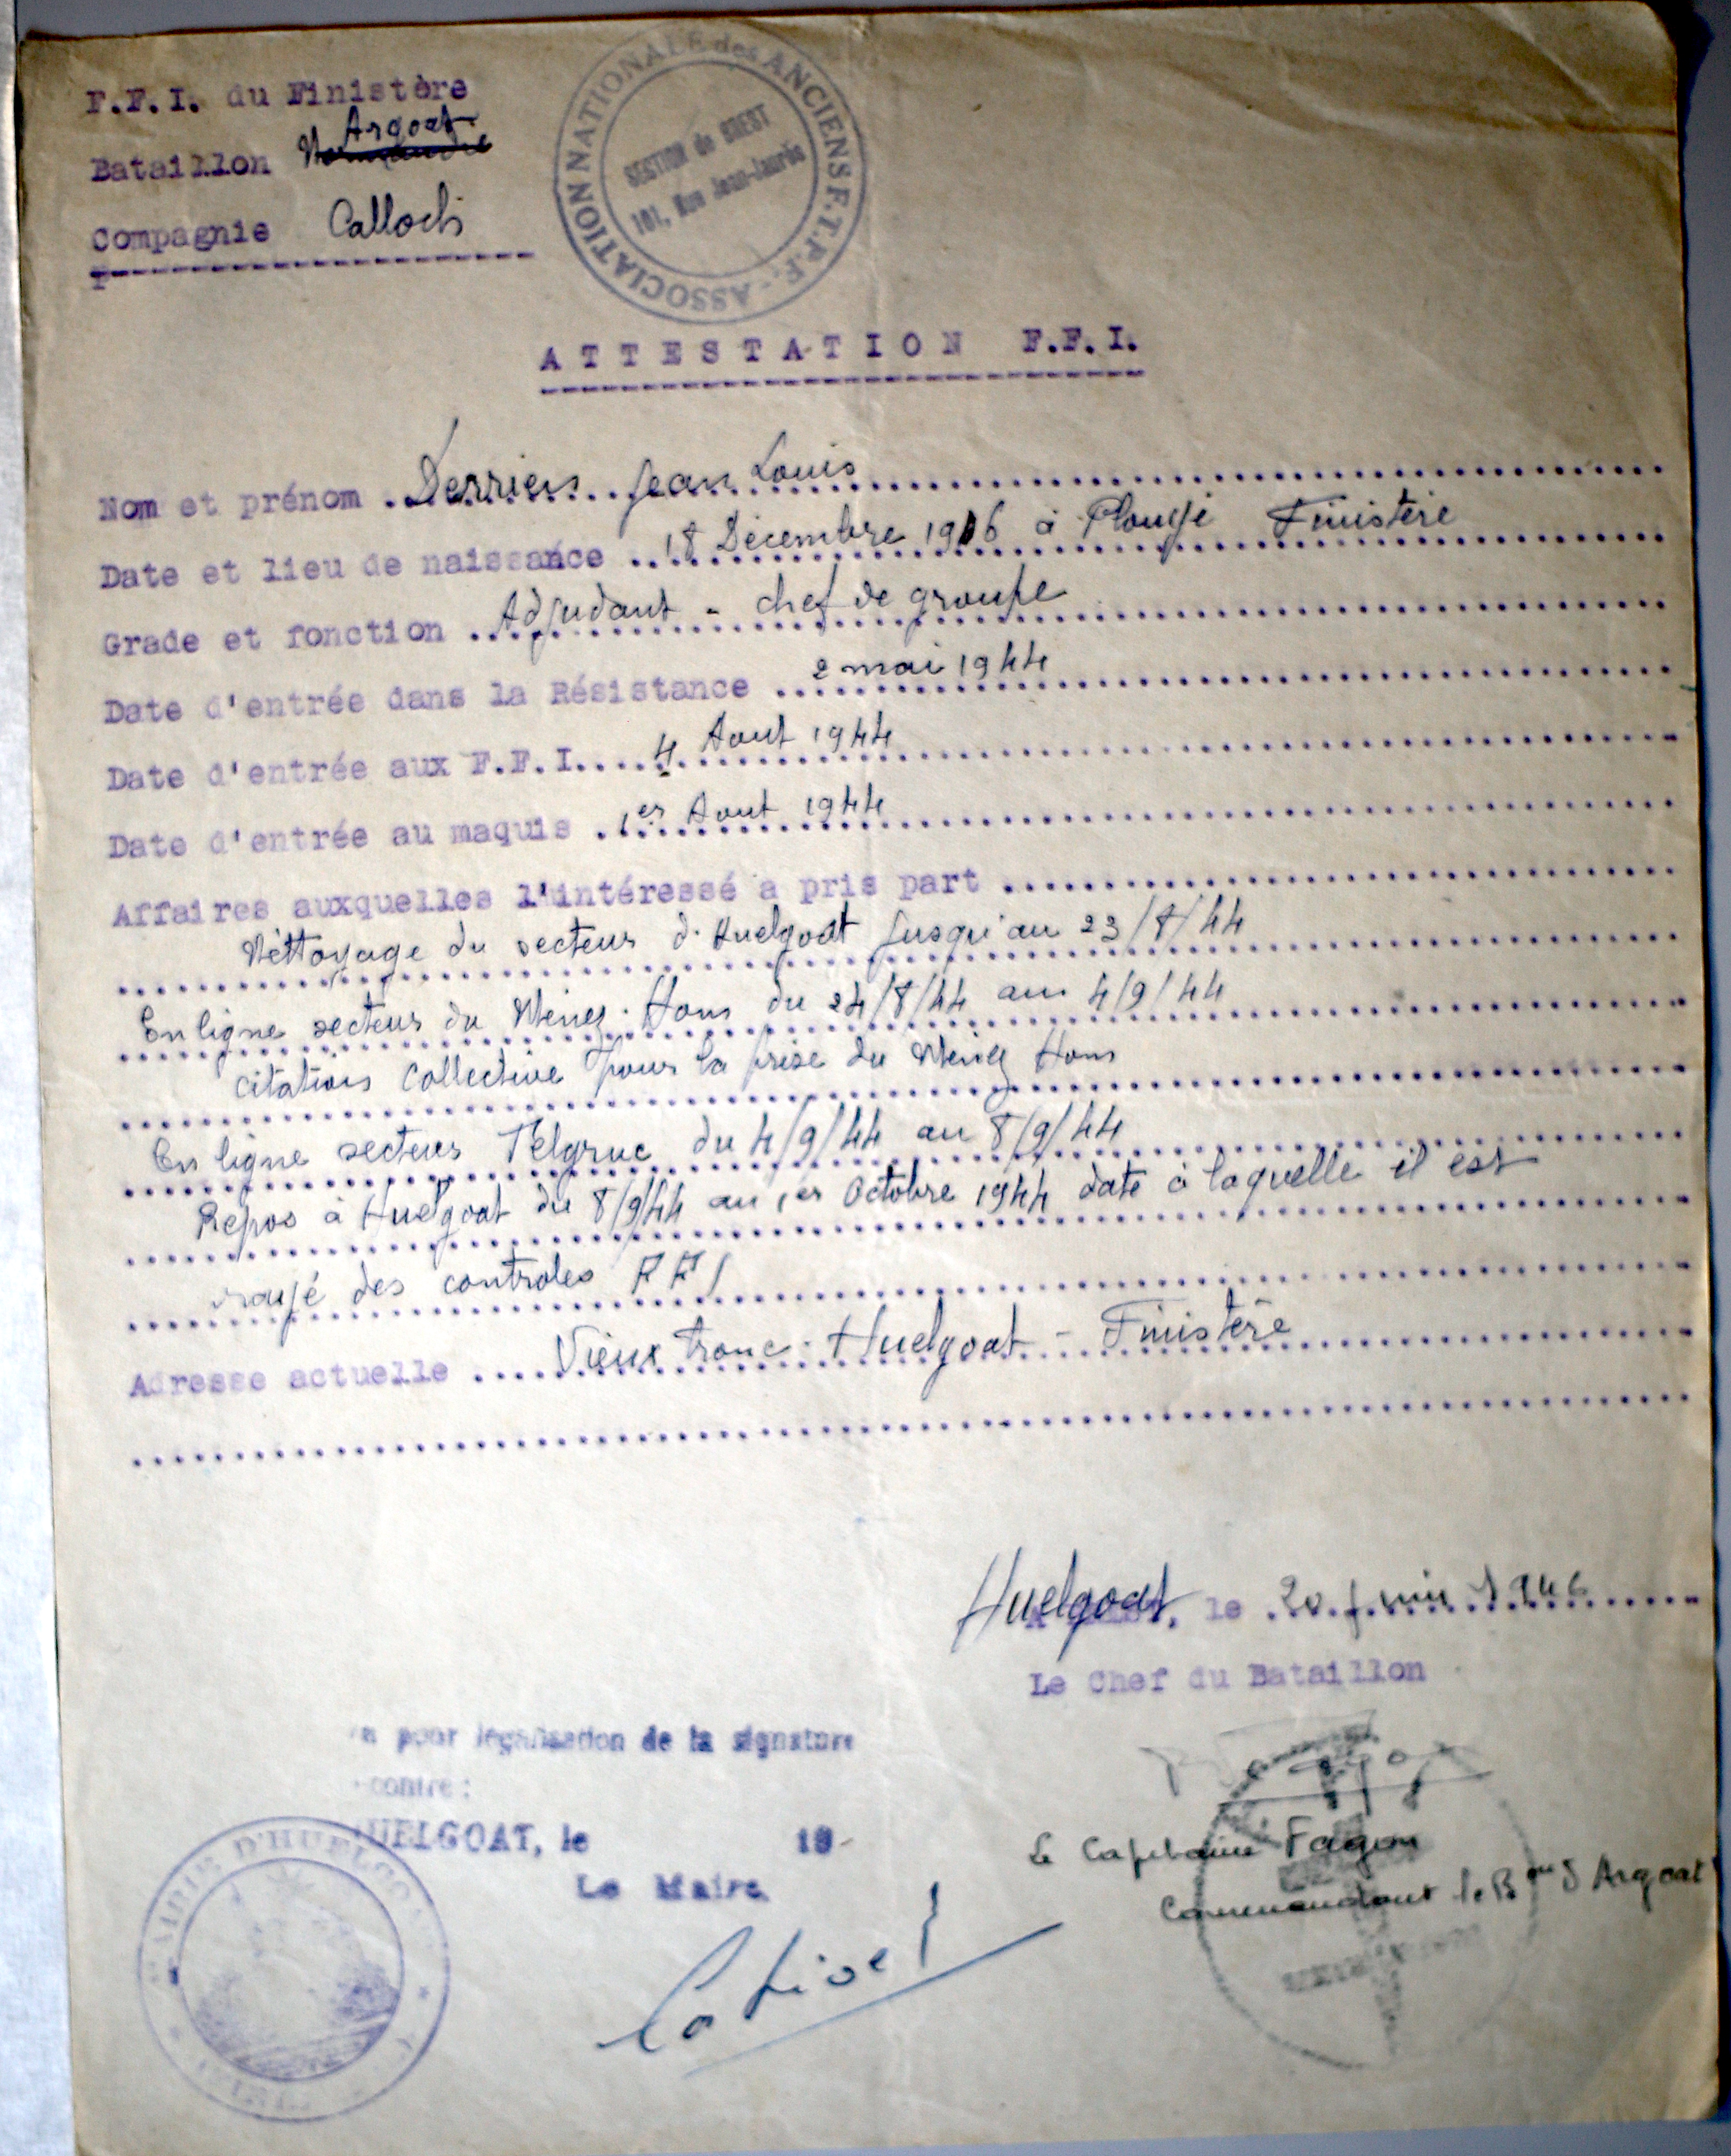 F.F.I. du Finistère
Argoat
Bataillon
Compagnie Calloch
ASSOCIATION NATIONALE des ANCIENS F.T.P.F.
SECTION de BREST
101, Rue Jean-Jaurès
ATTESTATION F.F.I.
Nom et prénom Derrien Jean Louis
Date et lieu de naissance 18 Décembre 1916 à Plouyé Finistère
Grade et fonction Adjudant - chef de groupe
Date d'entrée dans la Résistance 2 mai 1944
Date d'entrée aux F.F.I. 4 Aout 1944
Date d'entrée au maquis 1er Aout 1944
Affaires auxquelles l'intéressé a pris part
Nettoyage du secteur d'Huelgoat jusqu'au 23/8/44
En ligne secteur du Menez-Hom du 24/8/44 au 4/9/44
citation collective pour la prise du Menez Hom
En ligne secteur Telgruc du 4/9/44 au 8/9/44
Repos à Huelgoat du 8/9/44 au 1er Octobre 1944 date à laquelle il est
rayé des controles FFI
Adresse actuelle Vieux Tronc - Huelgoat - Finistère
Huelgoat, le 20 juin 1946
Le Chef du Bataillon
pour légalisation de la signature
contre :
HUELGOAT, le 19
Le Maire
Le Capitaine Fagon
Commandant le Bon d'Argoat
MAIRIE D'HUELGOAT